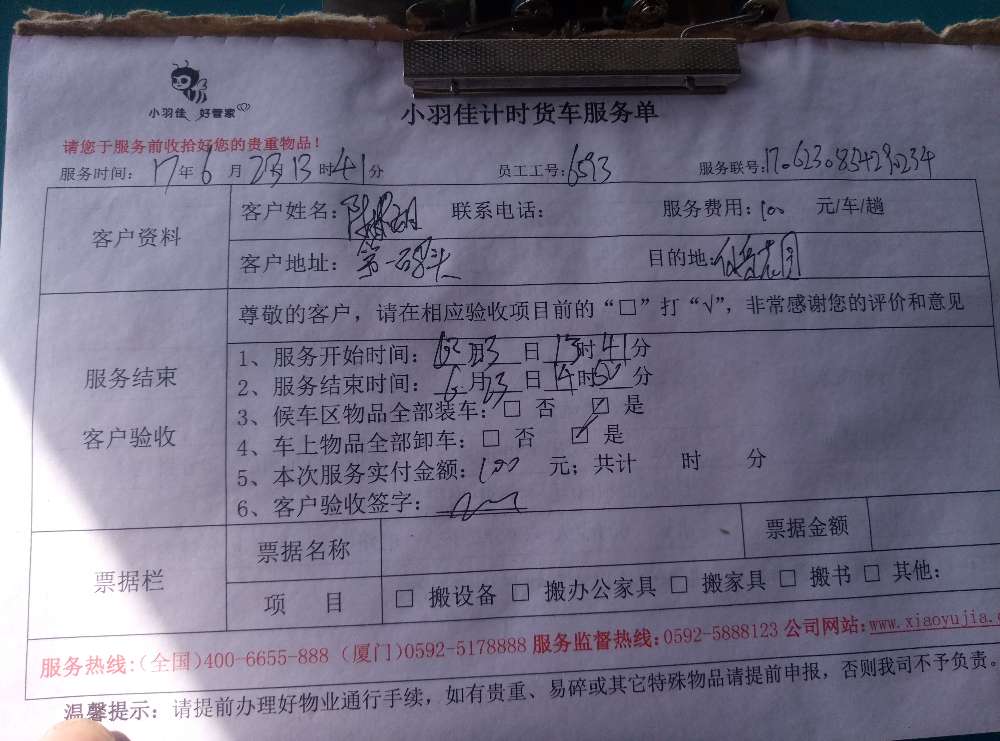 小羽佳 好管家
小羽佳计时货车服务单
请您于服务前收拾好您的贵重物品！
服务时间：17年6月23日13时41分 员工工号：6593 服务联号：1706230854290234
客户资料
客户姓名：陈 联系电话： 服务费用：100 元/车/趟
客户地址：第一码头 目的地：花园
服务结束
客户验收
尊敬的客户，请在相应验收项目前的“□”打“√”，非常感谢您的评价和意见
1、服务开始时间：6月23日13时41分
2、服务结束时间：6月23日14时50分
3、候车区物品全部装车：□ 否 ☑ 是
4、车上物品全部卸车：□ 否 ☑ 是
5、本次服务实付金额：100 元；共计 时 分
6、客户验收签字：
票据栏
票据名称 票据金额
项 目 □ 搬设备 □ 搬办公家具 □ 搬家具 □ 搬书 □ 其他：
服务热线：（全国）400-6655-888（厦门）0592-5178888 服务监督热线：0592-5888123 公司网站：www.xiaoyujia.c
温馨提示：请提前办理好物业通行手续，如有贵重、易碎或其它特殊物品请提前申报，否则我司不予负责。